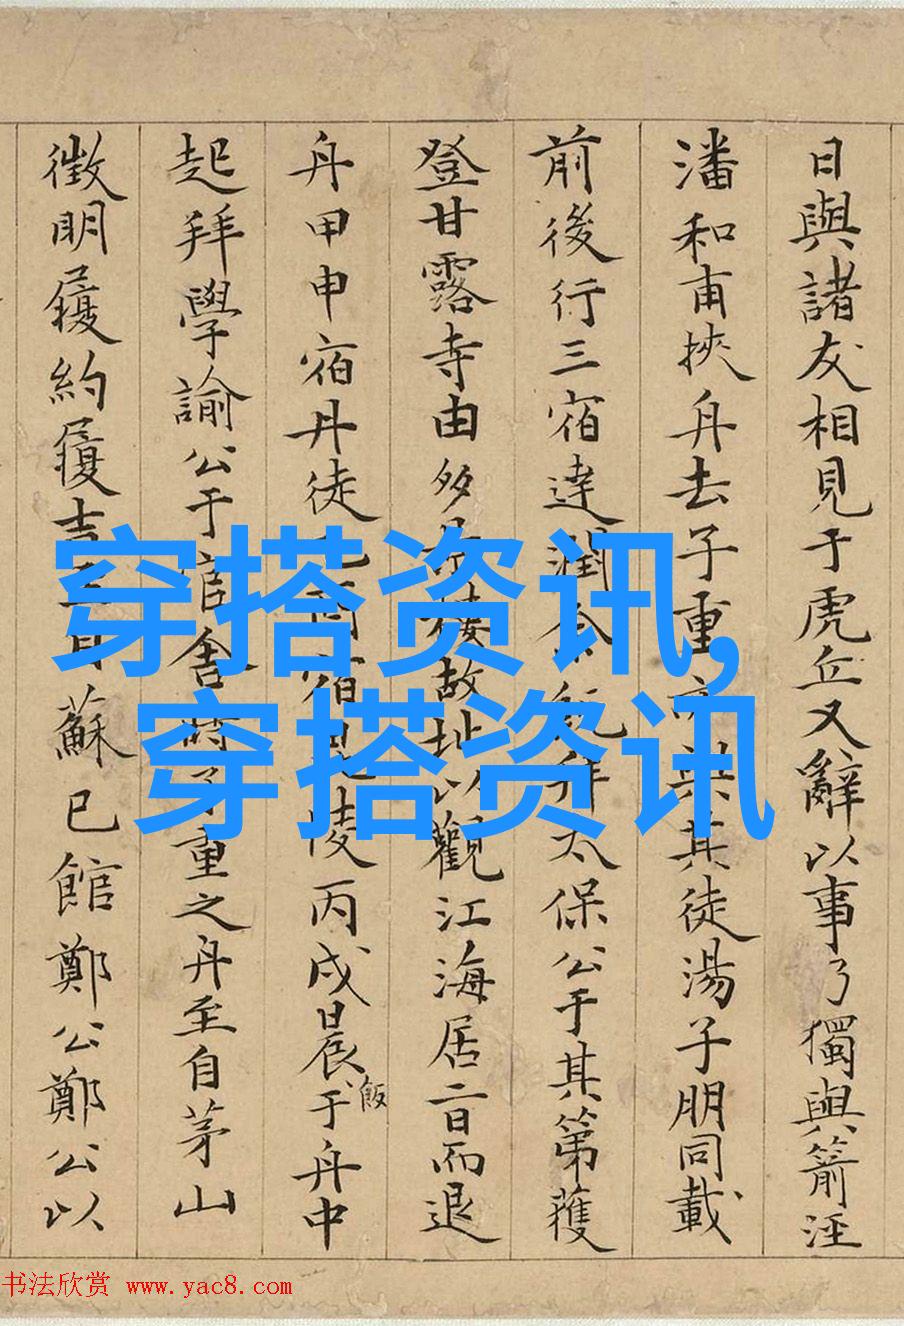 日與諸友相見于虎丘又辭以事乃獨與箭涇
潘和甫挾舟去子重與其徒湯子朋同載
前後行三宿達潤拜太保公于其第獲
登甘露寺由多景樓故址以觀江海居二日而退
舟甲申宿丹徒乙酉宿毘陵丙戌晨飯于舟中
起拜學諭公于官舍時子重之舟至自茅山
徵明履約履吉蘇已館鄭公鄭公以
穿搭资讯,
穿搭资讯
书法欣赏 www.yac8.com